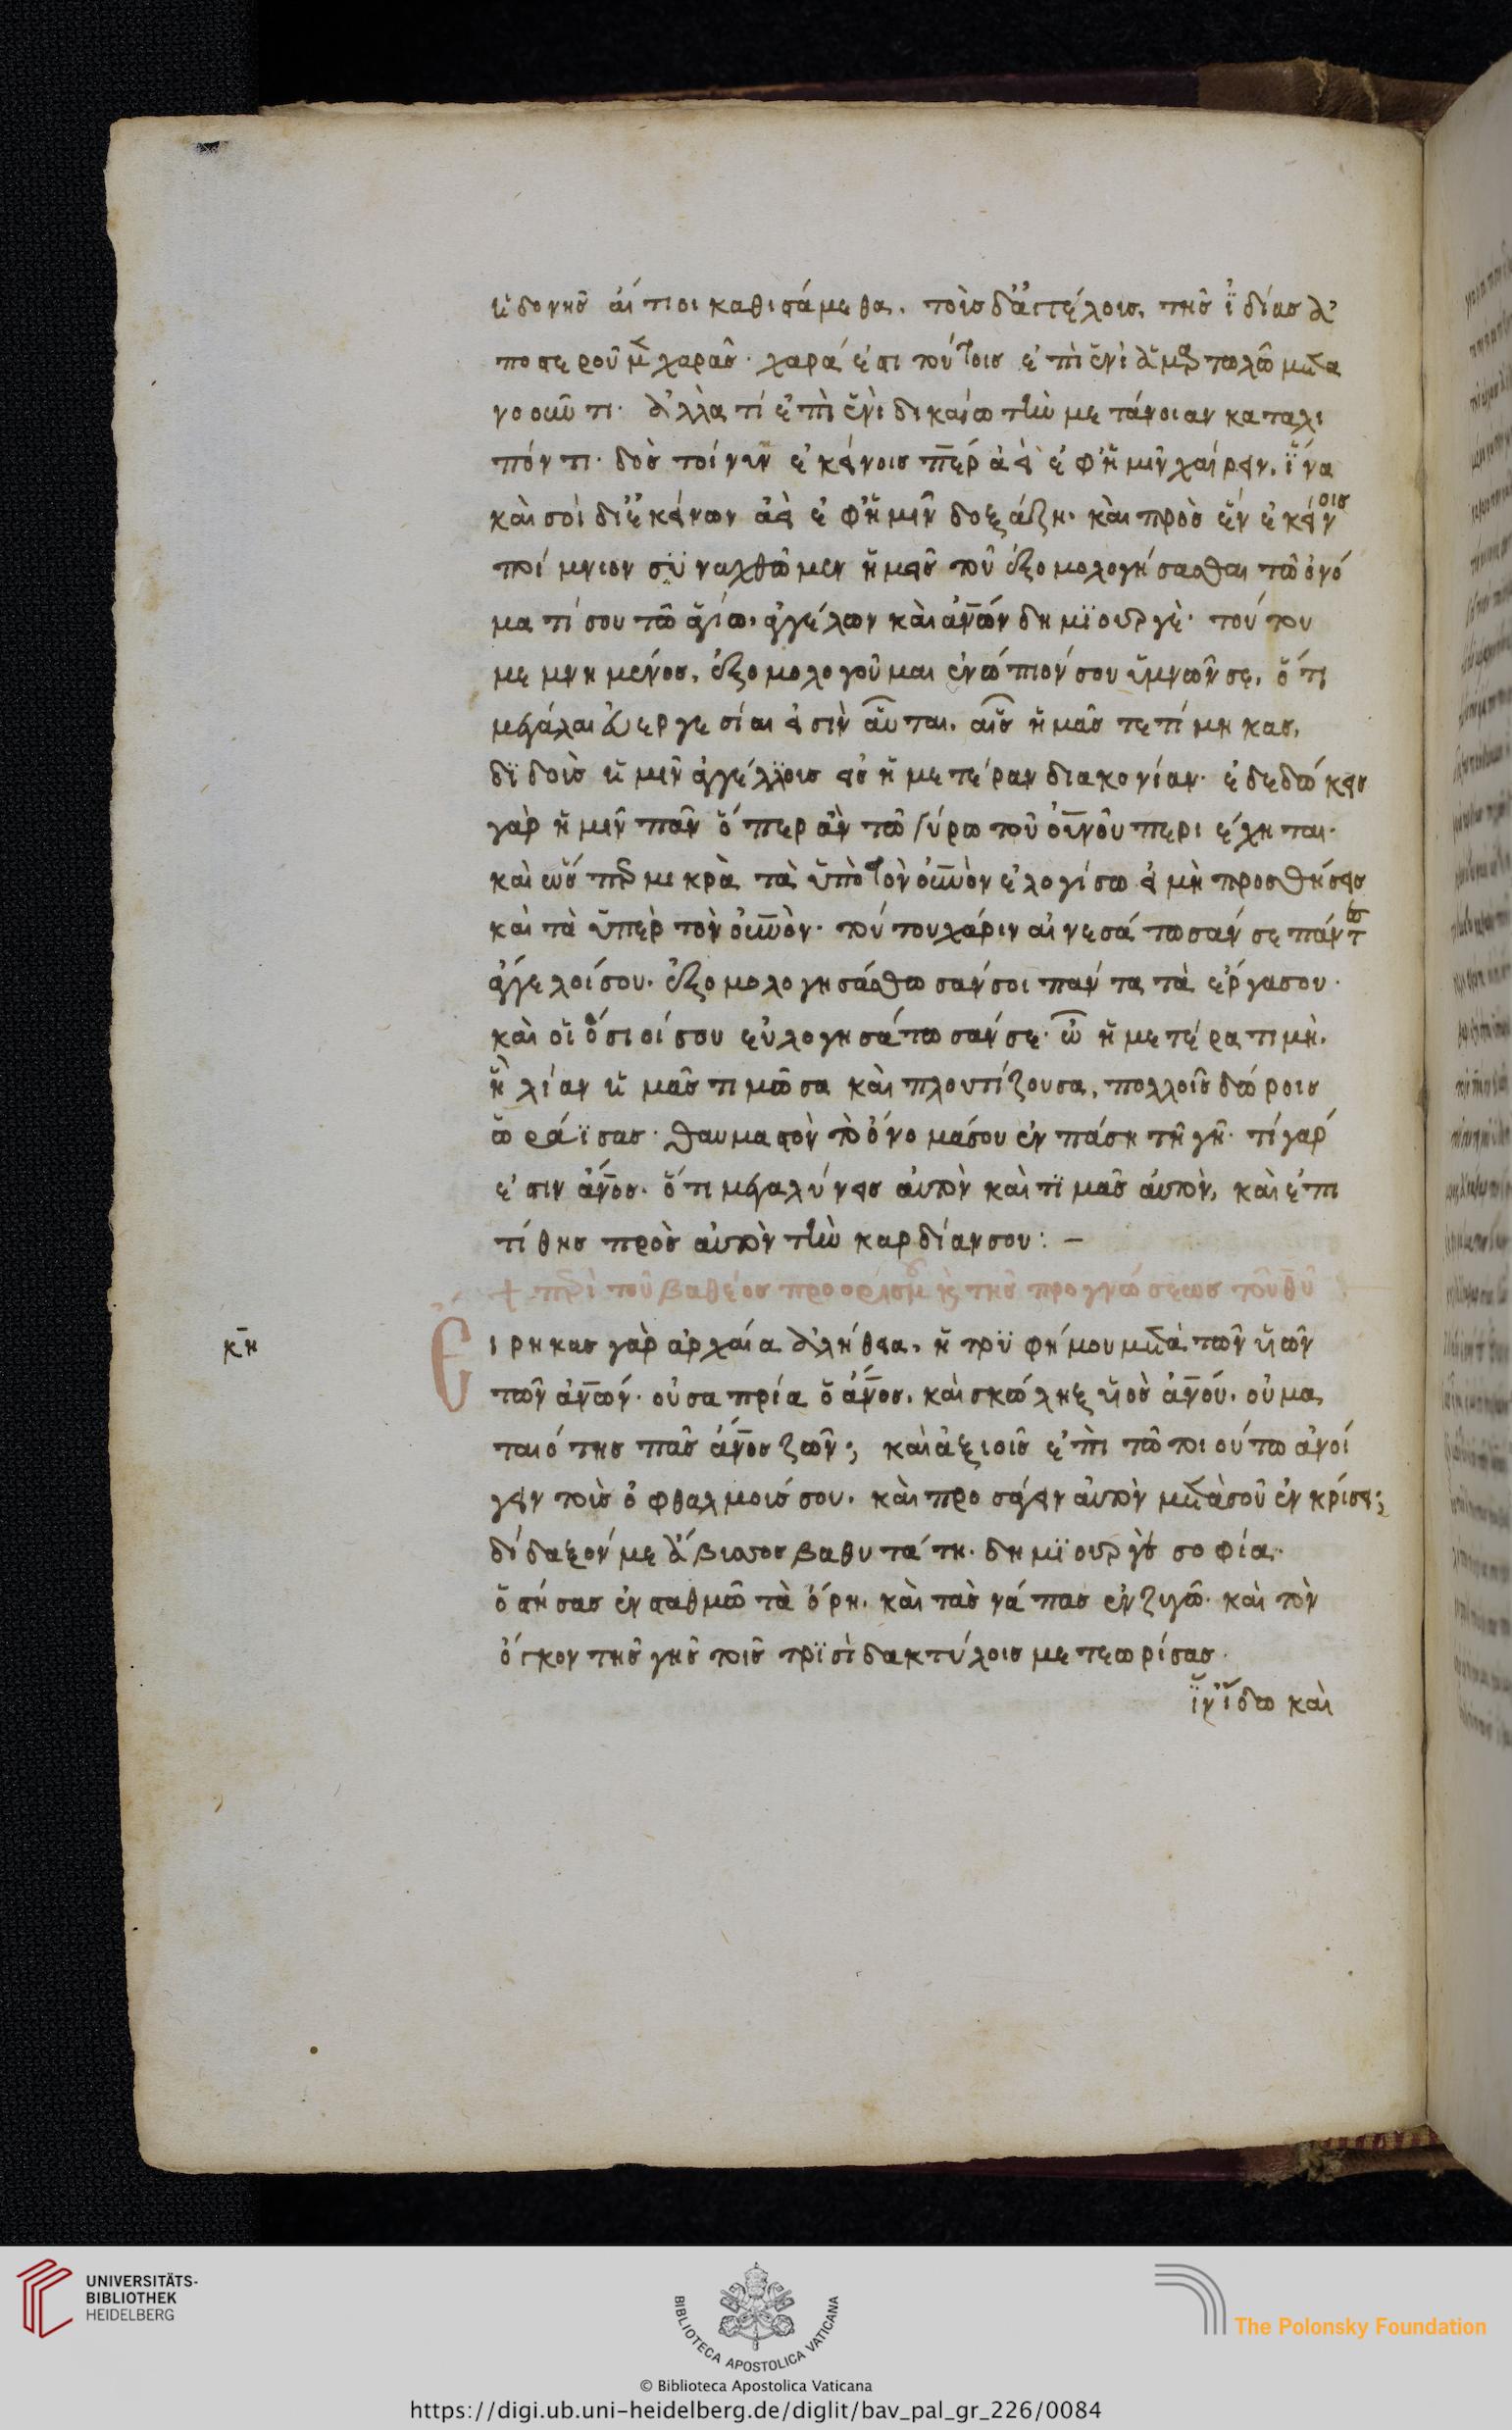 ἡδονῆς αἴτιοι καθιστάμεθα. τοῖς δ' ἀστέλοις, τῆς ἰδίας ἀ
ποστεροῦμ χαρᾶς· χαρά ἐστι τούτοις ἐπὶ ἑνὶ ἁμαρτωλῶ μετα
νοοῦντι· ἀλλὰ τί ἐπὶ ἑνὶ δικαίω τὴν μετάνοιαν καταλι
πόντι· δὸς τοίνυν ἐκείνοις περ ἀεὶ ἐφ' ἡμῖν χαίρειν, ἵνα
καὶ σοὶ δι' ἐκείνων ἀεὶ ἐφ' ἡμῖν δοξάζη. καὶ πρὸς ἓν ἐκείνοις
ποίμνιον συναχθῶμεν ἡμεῖς τοῦ ἐξομολογήσασθαι τῶ ὀνό
ματί σου τῶ ἁγίω, ἀγγέλων καὶ ἀνων δημϊουργὲ· τούτου
μεμνημένος, ἐξομολογοῦμαι ἐνώπιόν σου ὑμνῶν σε, ὅτι
μεγάλαι εὐεργεσίαι εἰσὶν αὗται, αἷς ἡμᾶς τετίμηκας,
δϊδοὺς ἡμῖν ἀγγέλλοις εἰς ἡμετέραν διακονίαν· ἐδεδώκεις
γὰρ ἡμῖν πᾶν ὅπερ ἂν τῶ γύρω τοῦ οὐνοῦ περιέχηται·
καὶ ὥσπερ μικρὰ τὰ ὑπὸ τὸν οὐνὸν ἐλογίσω εἰ μὴ προσθήσεις
καὶ τὰ ὑπὲρ τὸν οὐνὸν· τούτου χάριν αἰνεσάτωσάν σε πάντ
ἄγγελοί σου. ἐξομολογησάσθωσάν σοι πάντα τὰ ἔργα σου·
καὶ οἱ ὅσιοί σου εὐλογησάτωσάν σε· ὦ ἡμετέρα τιμὴ.
ἡ λίαν ἡμᾶς τιμῶσα καὶ πλουτίζουσα, πολλοῖς δώροις
ὡράϊσας· θαυμαστὸν τὸ ὄνομά σου ἐν πάση τῆ γῆ· τί γάρ
ἐστιν ἄνος. ὅτι μεγαλύνεις αὐτὸν καὶ τϊμᾶς αὐτὸν, καὶ ἐπι
τίθης πρὸς αὐτὸν τὴν καρδίαν σου: –
+ περὶ τοῦ βαθέος προορισμοῦ καὶ τῆς προγνώσεως τοῦ θυ
κη Εἴρηκας γὰρ ἀρχαία ἀλήθεια, ἡ τρϋφή μου μετὰ τῶν υἱῶν
τῶν ἀνων· οὐ σαπρία ὁ ἄνος, καὶ σκώληξ υἱὸς ἀνου, οὐ μα
ταιότης πᾶς ἄνος ζῶν; καὶ ἀξιοῖς ἐπὶ τῶ τοιούτω ἀνοί
γειν τοὺς ὀφθαλμούς σου. καὶ προσάγειν αὐτὸν μετὰ σοῦ ἐν κρίσει;
δίδαξόν με ἄβυσσος βαθυτάτη. δημϊουργὸς σοφία.
ὁ στήσας ἐν σταθμῶ τὰ ὄρη. καὶ τὰς νάπας ἐν ζυγῶ· καὶ τὸν
ὄγκον τῆς γῆς τοῖς τρϊσὶ δακτύλοις μετεωρίσας·
ἵν' ἴδω καὶ
UNIVERSITÄTS-
BIBLIOTHEK
HEIDELBERG
BIBLIOTECA APOSTOLICA VATICANA
The Polonsky Foundation
© Biblioteca Apostolica Vaticana
https://digi.ub.uni-heidelberg.de/diglit/bav_pal_gr_226/0084